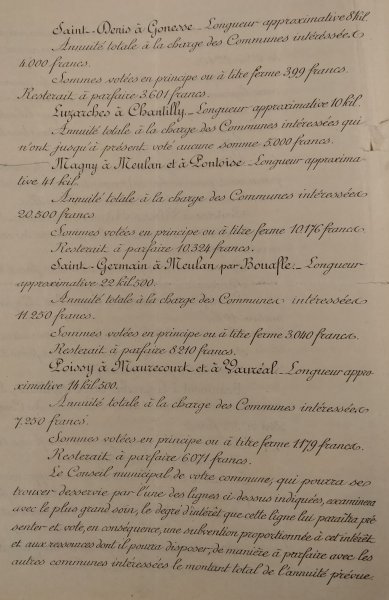 Saint-Denis à Gonesse – Longueur approximative 8 kil.
Annuité totale à la charge des Communes intéressées
4.000 francs.
Sommes votées en principe ou à titre ferme 399 francs.
Resterait à parfaire 3.601 francs.
Luzarches à Chantilly – Longueur approximative 10 kil.
Annuité totale à la charge des Communes intéressées qui
n'ont jusqu'à présent voté aucune somme 5.000 francs.
Magny à Meulan et à Pontoise – Longueur approxima-
tive 41 kil.
Annuité totale à la charge des Communes intéressées
20.500 francs
Sommes votées en principe ou à titre ferme 10.176 francs.
Resterait à parfaire 10.324 francs.
Saint-Germain à Meulan par Bouafle – Longueur
approximative 22 kil. 500.
Annuité totale à la charge des Communes intéressées
11.250 francs.
Sommes votées en principe ou à titre ferme 3.040 francs.
Resterait à parfaire 8.210 francs.
Poissy à Maurecourt et à Vauréal – Longueur appro-
ximative 14 kil. 500.
Annuité totale à la charge des Communes intéressées
7.250 francs.
Sommes votées en principe ou à titre ferme 1179 francs.
Resterait à parfaire 6.071 francs.
Le Conseil municipal de votre commune, qui pourra se
trouver desservie par l'une des lignes ci-dessus indiquées, examinera
avec le plus grand soin, le degré d'intérêt que cette ligne lui paraîtra pré
senter et vote, en conséquence, une subvention proportionnée à cet intérêt
et aux ressources dont il pourra disposer, de manière à parfaire avec les
autres communes intéressées le montant total de l'annuité prévue.